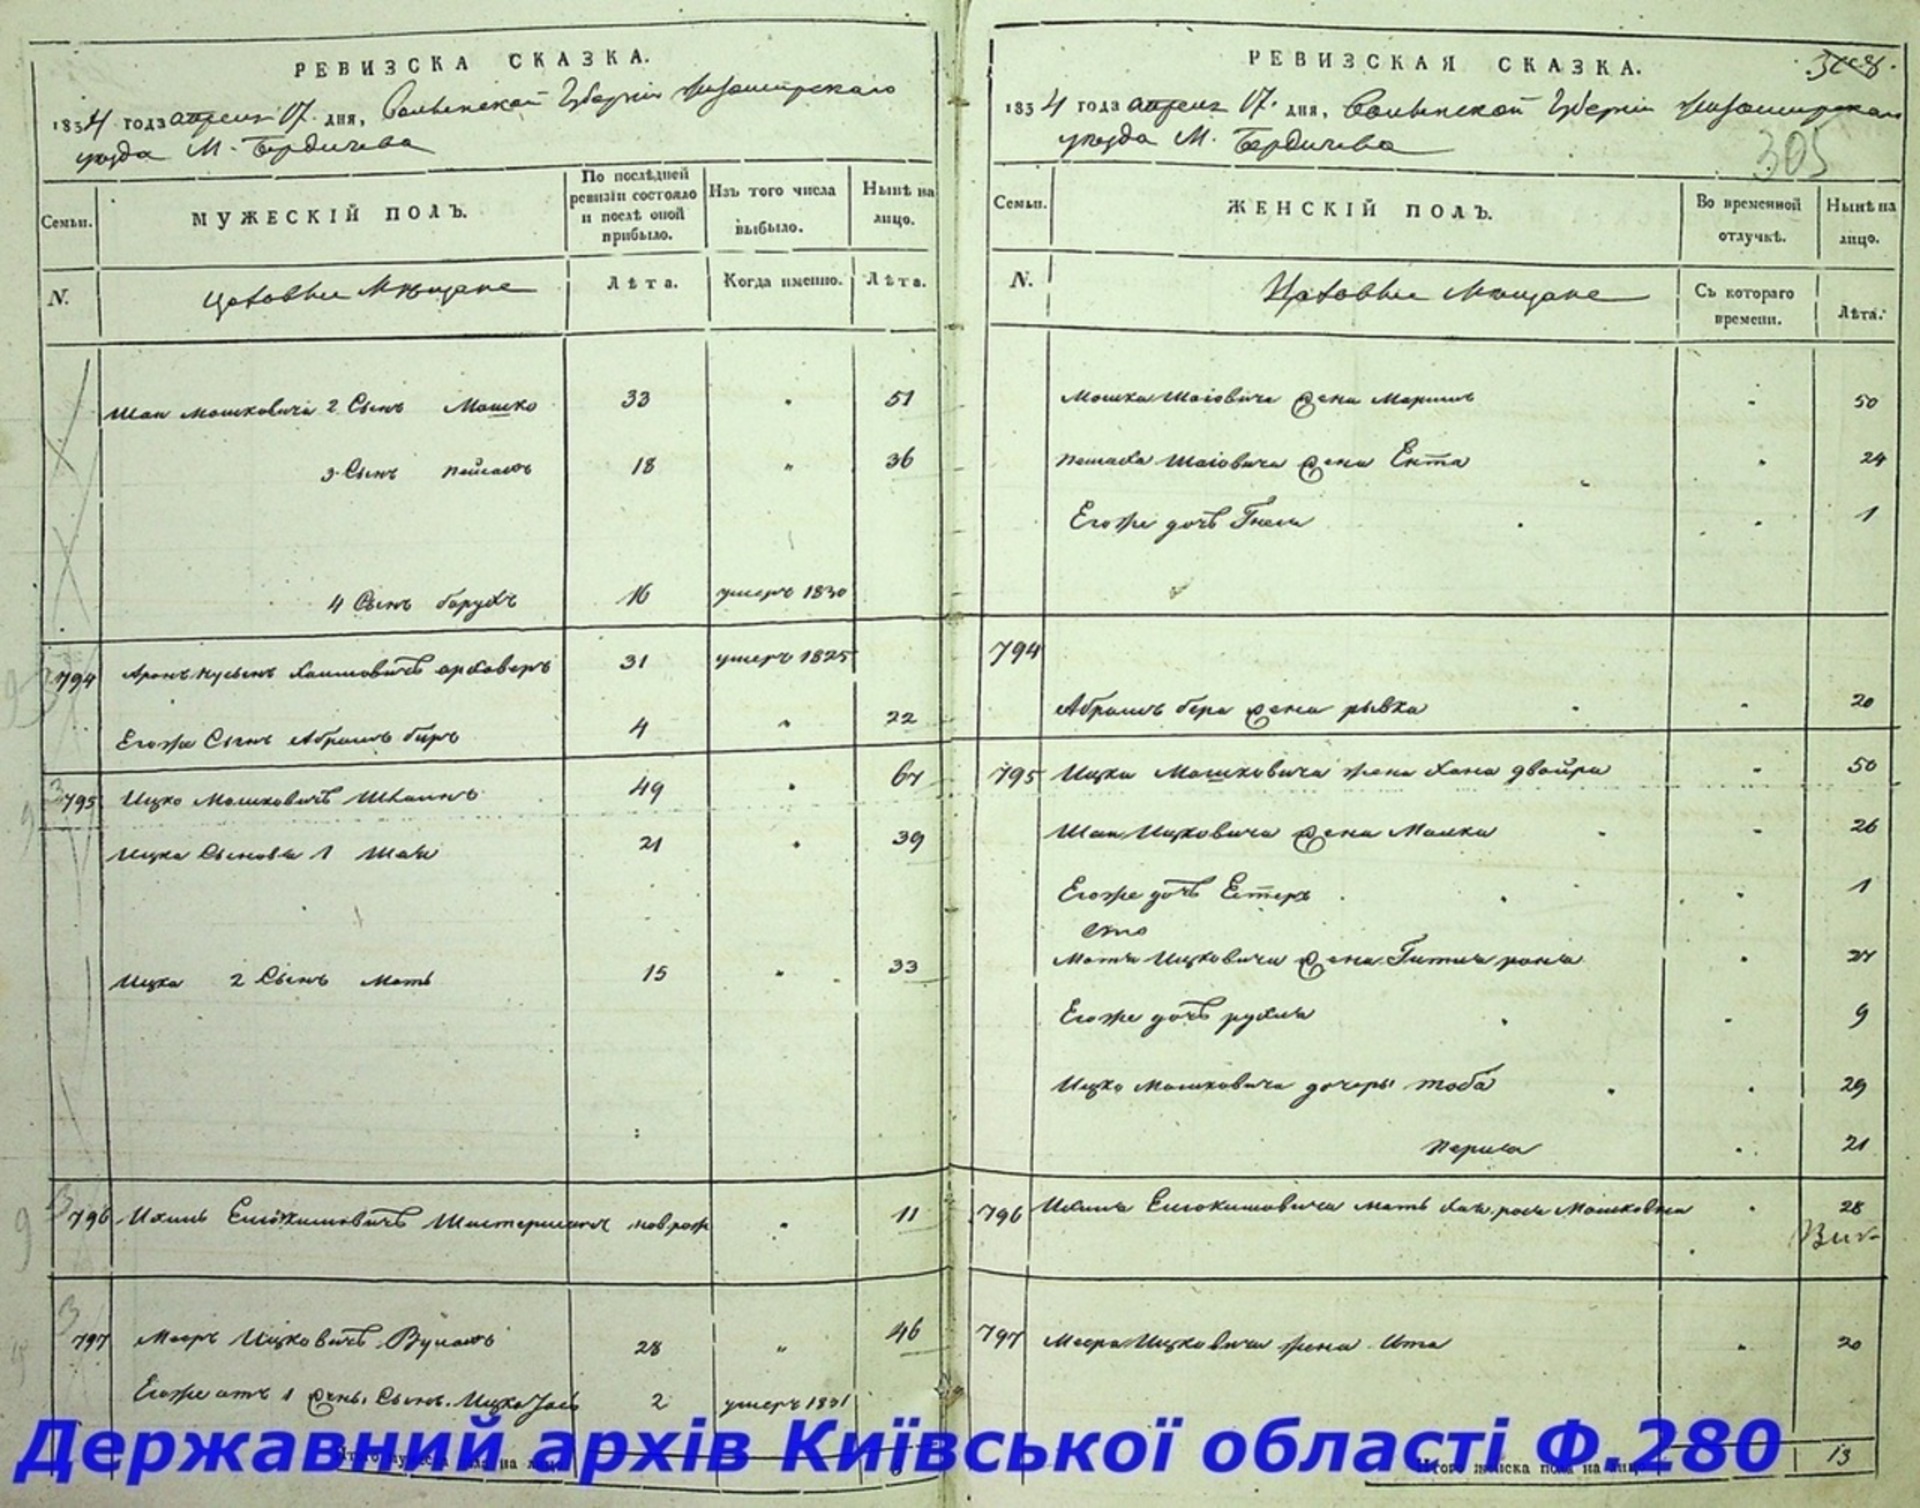 РЕВИЗСКА СКАЗКА.
1834 года апреля 17 дня, Волынской Губерніи Житомирскаго
уезда М. Бердичева
Семьи.
МУЖЕСКІЙ ПОЛЪ.
По послѣдней
ревизіи состояло
и послѣ оной
прибыло.
Изъ того числа
выбыло.
Нынѣ на
лицо.
N.
Цеховые Мещане
Лѣта.
Когда именно.
Лѣта.
Шаи Мошковича 2 Сынъ Мошко 33 " 51
3 Сынъ Пейсахъ 18 " 36
4 Сынъ Борухъ 16 умеръ 1830
794 Аронъ Нусынъ Хаимовичъ 31 умеръ 1825
Егоже Сынъ Абрамъ Беръ 4 " 22
795 Ицко Мошковичъ 49 " 67
Ицка Сыновья 1 Шая 21 " 39
Ицка 2 Сынъ Моть 15 " 33
796 Шистерманъ новрож " 11
797 Мееръ Ицковичъ 28 " 46
Егоже отъ 1 жены Сынъ Ицко 2 умеръ 1831
РЕВИЗСКАЯ СКАЗКА.
305
1834 года апреля 17 дня, Волынской Губерніи Житомирскаго
уезда М. Бердичева
Семьи.
ЖЕНСКІЙ ПОЛЪ.
Во временной
отлучкѣ.
Нынѣ на
лицо.
N.
Цеховые Мещане
Съ котораго
времени.
Лѣта.
Мошка Шаіовича жена Маріемъ " 50
Пейсаха Шаіовича жена Ента " 24
Егоже дочь Гнеся " 1
794
Абрамъ Бера жена Рывка " 20
795 Ицка Мошковича жена Хана Двойра " 50
Шаи Ицковича жена Малка " 26
Егоже дочь Естеръ " 1
Мотя Ицковича жена Гитля " 27
Егоже дочь Рухля " 9
Ицко Мошковича дочеры Тоба " 29
Перля " 21
796 мать Мошковна " 28
797 Меера Ицковича жена Ита " 20
Итого женска пола на лицо 13
Державний архів Київської області Ф.280